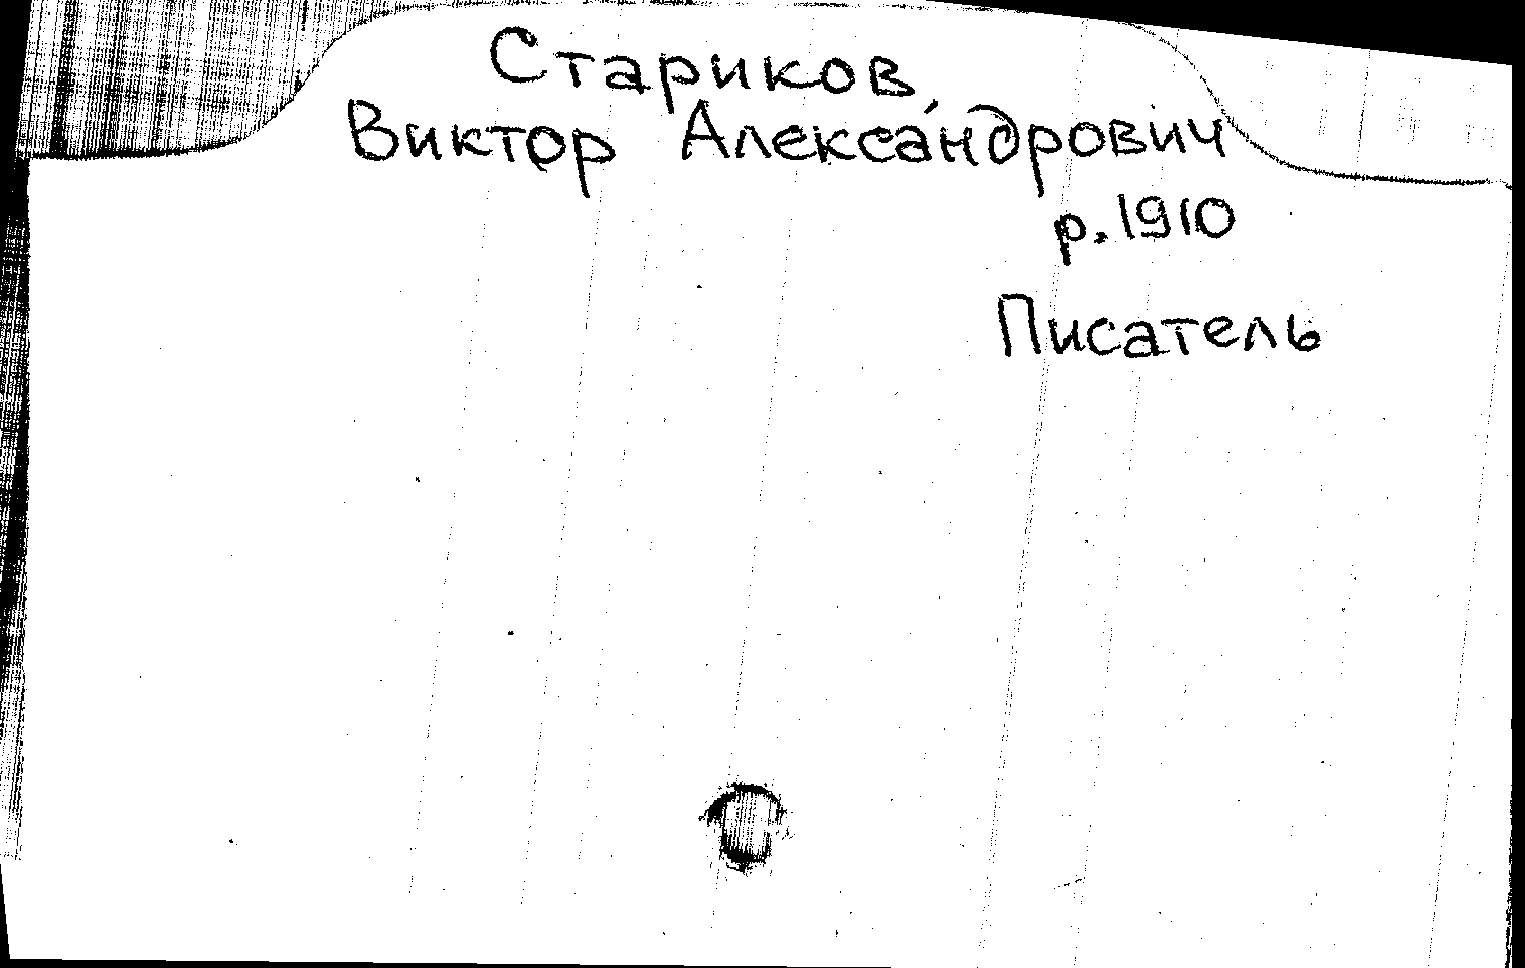 Стариков,
Виктор Александрович
р. 1910
Писатель